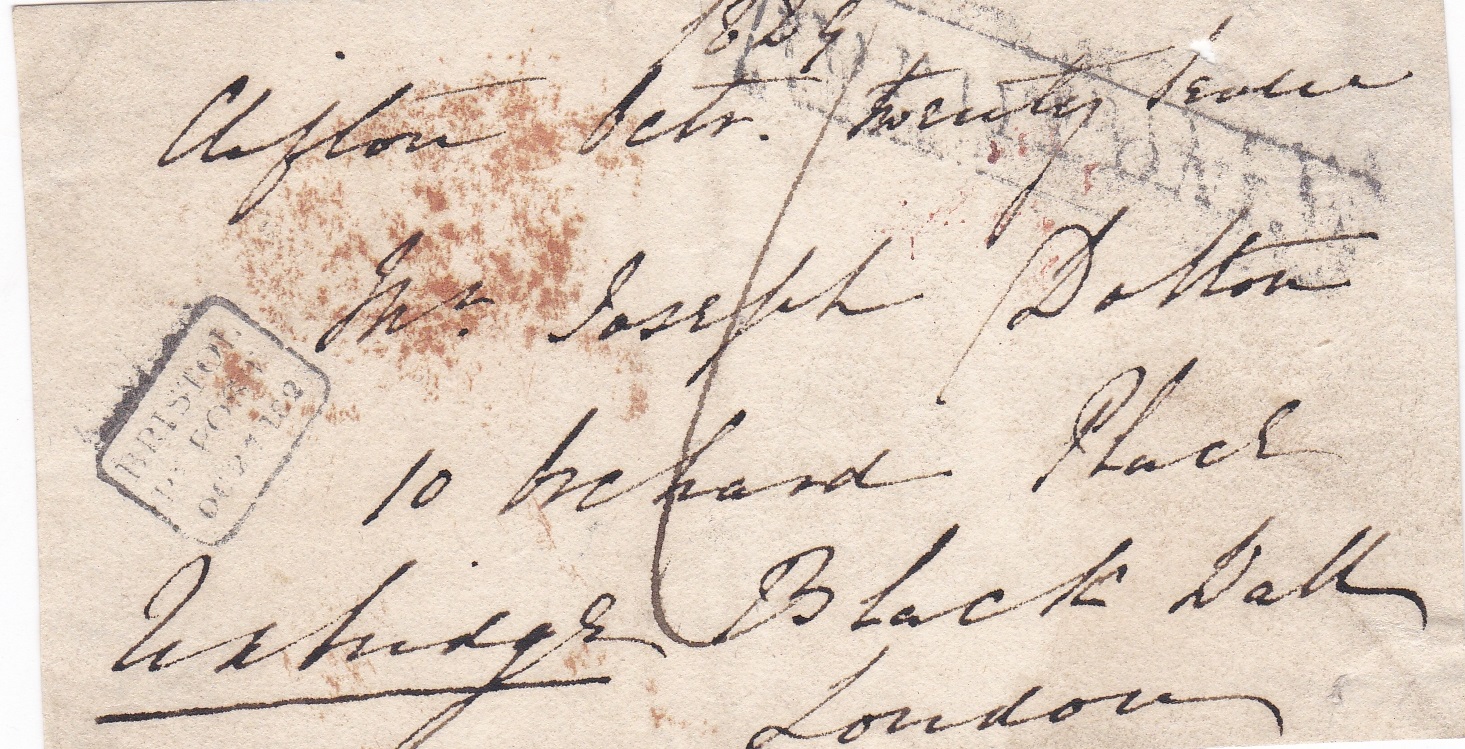 1829
Clifton Octr. Twenty Seven
Mr. Joseph Dalton
10 Orchard Place
Black Wall
London
Uxbridge
BRISTOL
OC 27 182